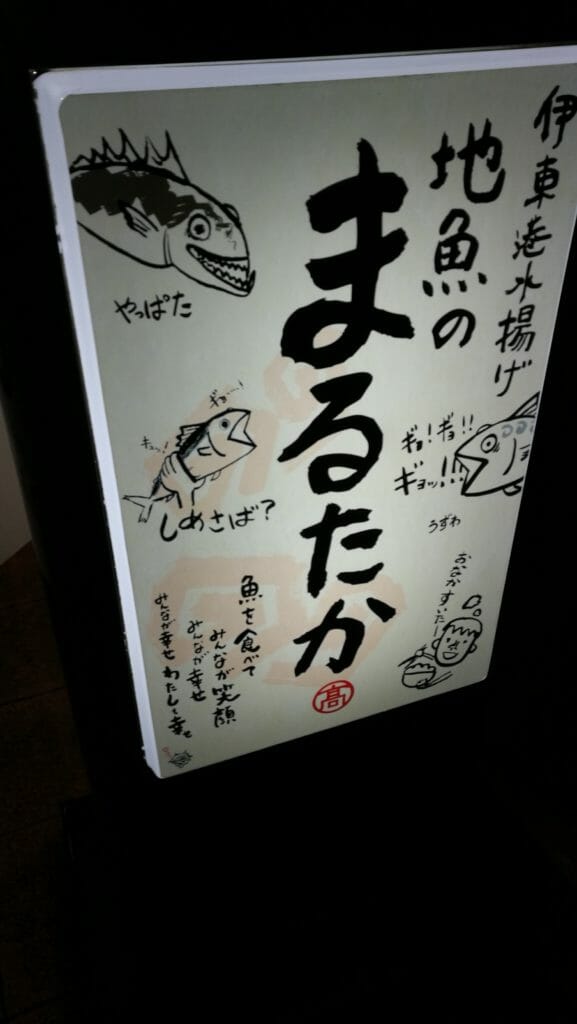 伊東港水揚げ
地魚の
まるたか
高
やっぱた
ギョ…!
キュッ!
しめさば?
ギョ!ギョ!!
ギョッ!!!
うずわ
おなかすいたー
魚を食べて
みんなが笑顔
みんなが幸せ
みんなが幸せ わたしも幸せ